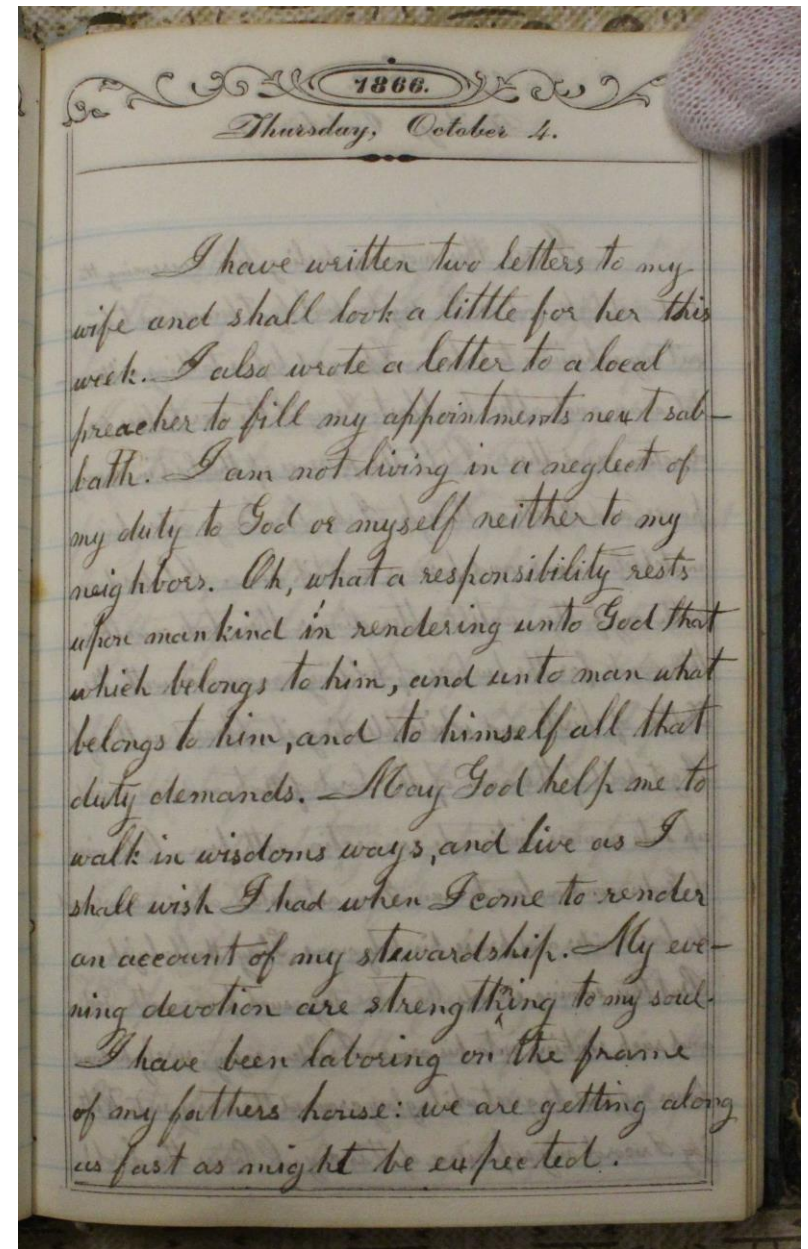 1866.
Thursday, October 4.
I have written two letters to my
wife and shall look a little for her this
week. I also wrote a letter to a local
preacher to fill my appointments next sab-
bath. I am not living in a neglect of
my duty to God or myself neither to my
neighbors. Oh, what a responsibility rests
upon mankind in rendering unto God that
which belongs to him, and unto man what
belongs to him, and to himself all that
duty demands. May God help me to
walk in wisdoms ways, and live as I
shall wish I had when I come to render
an account of my stewardship. My eve-
ning devotion are strengthning to my soul.
I have been laboring on the frame
of my fathers house: we are getting along
as fast as might be expected.